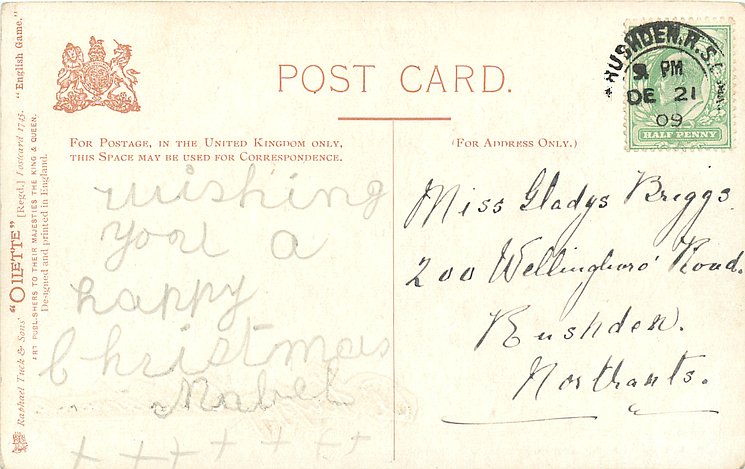 POST CARD.
FOR POSTAGE, IN THE UNITED KINGDOM ONLY,
THIS SPACE MAY BE USED FOR CORRESPONDENCE.
(FOR ADDRESS ONLY.)
wishing
you a
happy
Christmas
Mabel
+ + + + + + +
Miss Gladys Briggs.
200 Wellingboro' Road.
Rushden.
Northants.
RUSHDEN.R.S.O
9 PM
DE 21
09
HALF PENNY
Raphael Tuck & Sons' "OILETTE" [Regd.] Postcard 1745. "English Game."
ART PUBLISHERS TO THEIR MAJESTIES THE KING & QUEEN.
Designed and printed in England.